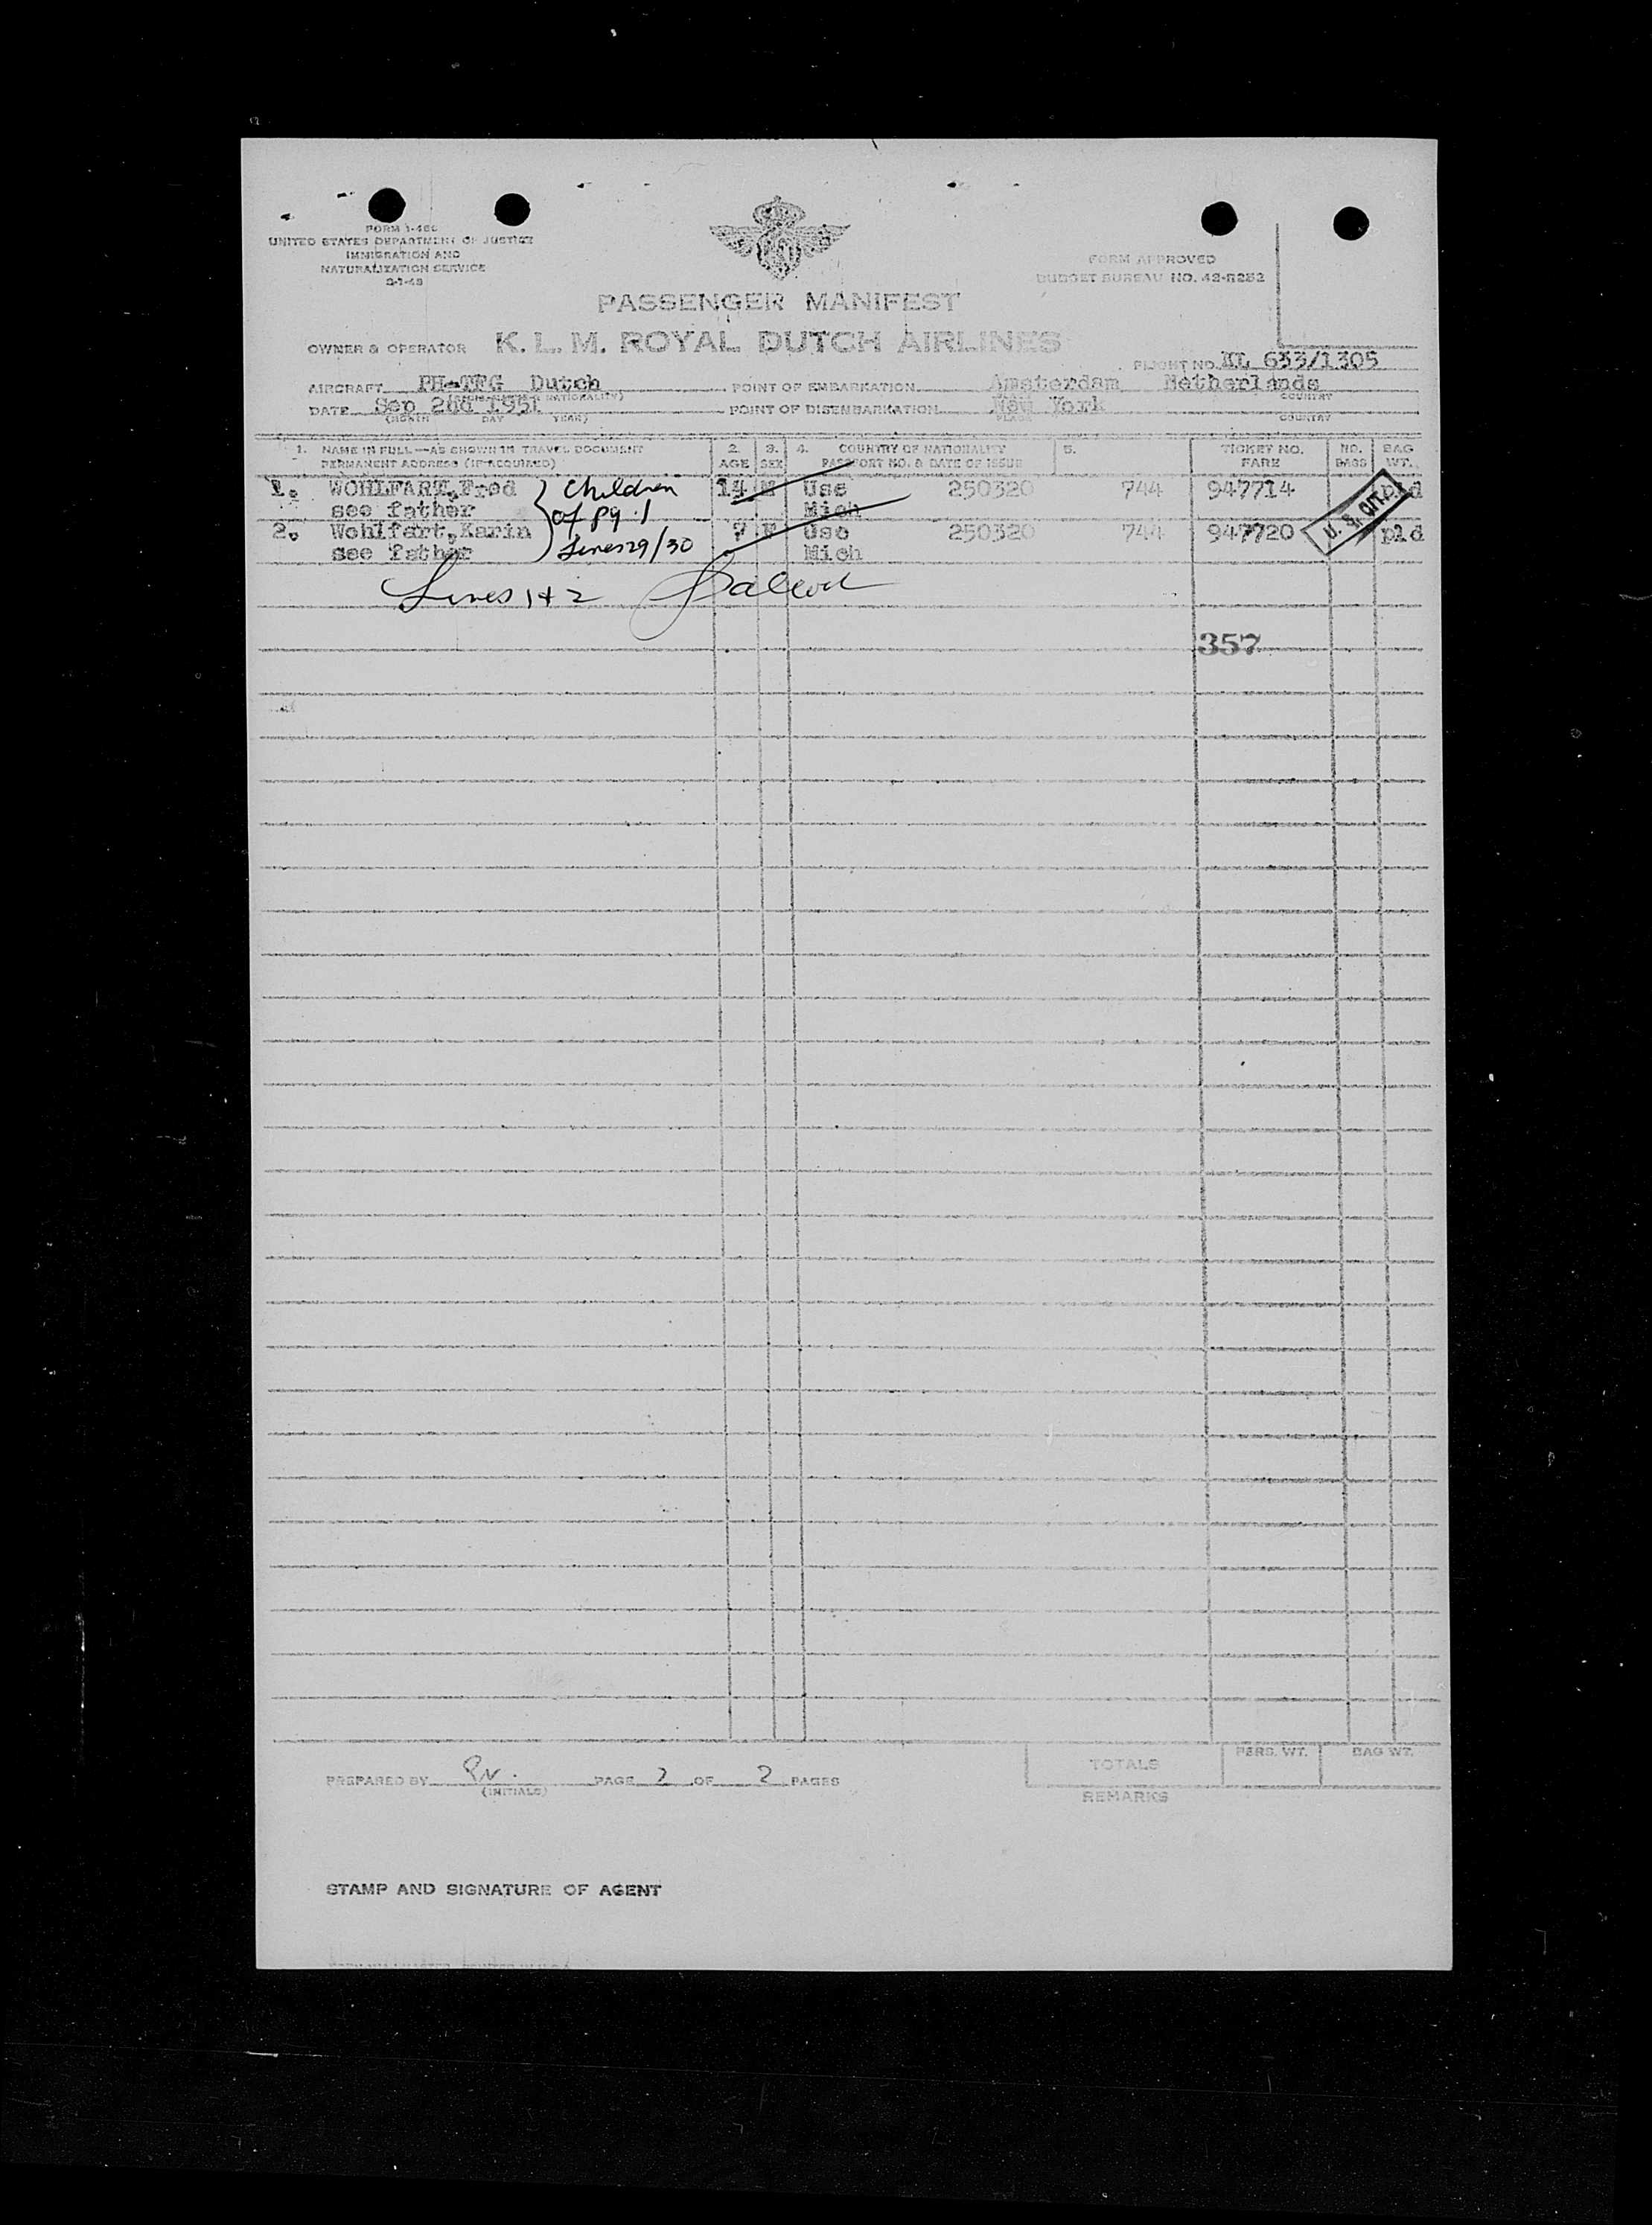 FORM I-466
UNITED STATES DEPARTMENT OF JUSTICE
IMMIGRATION AND
NATURALIZATION SERVICE
FORM APPROVED
BUDGET BUREAU NO. 43-R282
PASSENGER MANIFEST
OWNER & OPERATOR K. L. M. ROYAL DUTCH AIRLINES
FLIGHT NO. KL 633/1305
AIRCRAFT PH-TFG Dutch POINT OF EMBARKATION Amsterdam Netherlands
COUNTRY
DATE Sep 2nd 1951 POINT OF DISEMBARKATION New York
(MONTH DAY YEAR) PLACE COUNTRY
1. NAME IN FULL—AS SHOWN IN TRAVEL DOCUMENT 2. 3. 4. COUNTRY OF NATIONALITY 5. TICKET NO. NO. BAG
PERMANENT ADDRESS (IF REQUIRED) AGE SEX PASSPORT NO. & DATE OF ISSUE FARE BAGS WT.
1. WOHLFART, Fred Children 14 M Usc 250320 744 947714 pld
see father of pg. 1 Mich
2. Wohlfart, Karin Lines 29/30 7 F Usc 250320 744 947720 U. S. CIT. pld
see father Mich
Lines 1 + 2
357
PREPARED BY PAGE 2 OF 2 PAGES
(INITIALS)
TOTALS PERS. WT. BAG WT.
REMARKS
STAMP AND SIGNATURE OF AGENT